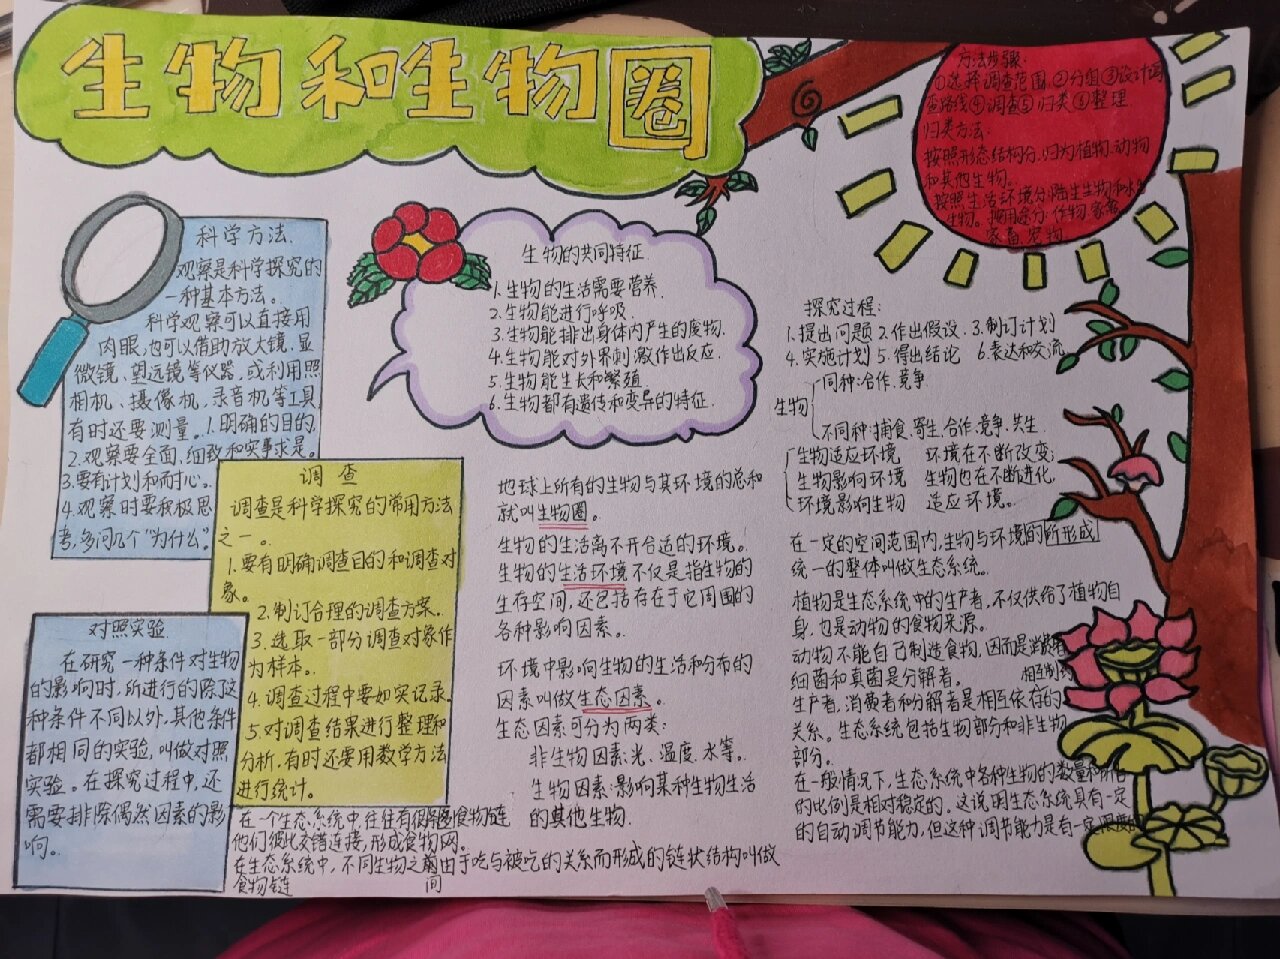 生物和生物圈
方法步骤:
①选择调查范围②分组③设计调
查路线④调查⑤归类⑥整理.
归类方法:
按照形态结构分,归为植物、动物
和其他生物。
按照生活环境分:陆生生物和水生
生物。按用途分:作物 家禽
家畜 宠物
科学方法.
观察是科学探究的
一种基本方法。
科学观察可以直接用
肉眼,也可以借助放大镜、显
微镜、望远镜等仪器,或利用照
相机、摄像机,录音机等工具,
有时还要测量。1.明确的目的
2.观察要全面,细致和实事求是。
3.要有计划和耐心。
4.观察时要积极思
考,多问几个“为什么”。
调 查
调查是科学探究的常用方法
之一。
1.要有明确调查目的和调查对
象。
2.制订合理的调查方案。
3.选取一部分调查对象作
为样本。
4.调查过程中要如实记录。
5.对调查结果进行整理和
分析,有时还要用数学方法
进行统计。
对照实验
在研究一种条件对生物
的影响时,所进行的除了这
种条件不同以外,其他条件
都相同的实验,叫做对照
实验。在探究过程中,还
需要排除偶然因素的影
响。
在一个生态系统中往往有很多食物链
他们彼此交错连接,形成食物网。
在生态系统中,不同生物之间由于吃与被吃的关系而形成的链状结构叫做
食物链
生物的共同特征
1.生物的生活需要营养.
2.生物能进行呼吸.
3.生物能排出身体内产生的废物.
4.生物能对外界刺激作出反应.
5.生物能生长和繁殖.
6.生物都有遗传和变异的特征.
地球上所有的生物与其环境的总和
就叫生物圈。
生物的生活离不开合适的环境。
生物的生活环境不仅是指生物的
生存空间,还包括存在于它周围的
各种影响因素。
环境中影响生物的生活和分布的
因素叫做生态因素。
生态因素可分为两类:
非生物因素:光、温度、水等。
生物因素:影响某种生物生活
的其他生物.
探究过程:
1.提出问题 2.作出假设 3.制订计划
4.实施计划 5.得出结论 6.表达和交流
同种:合作、竞争
生物
不同种:捕食、寄生、合作、竞争、共生
生物适应环境 环境在不断改变;
生物影响环境 生物也在不断进化,
环境影响生物 适应环境。
在一定的空间范围内,生物与环境的所形成
统一的整体叫做生态系统.
植物是生态系统中的生产者,不仅供给了植物自
身,也是动物的食物来源。
动物不能自己制造食物,因而是消费者
细菌和真菌是分解者。
生产者,消费者和分解者是相互依存的
关系。生态系统包括生物部分和非生物
部分。
在一般情况下,生态系统中各种生物的数量和所占
的比例是相对稳定的。这说明生态系统具有一定
的自动调节能力,但这种调节能力是有一定限度的